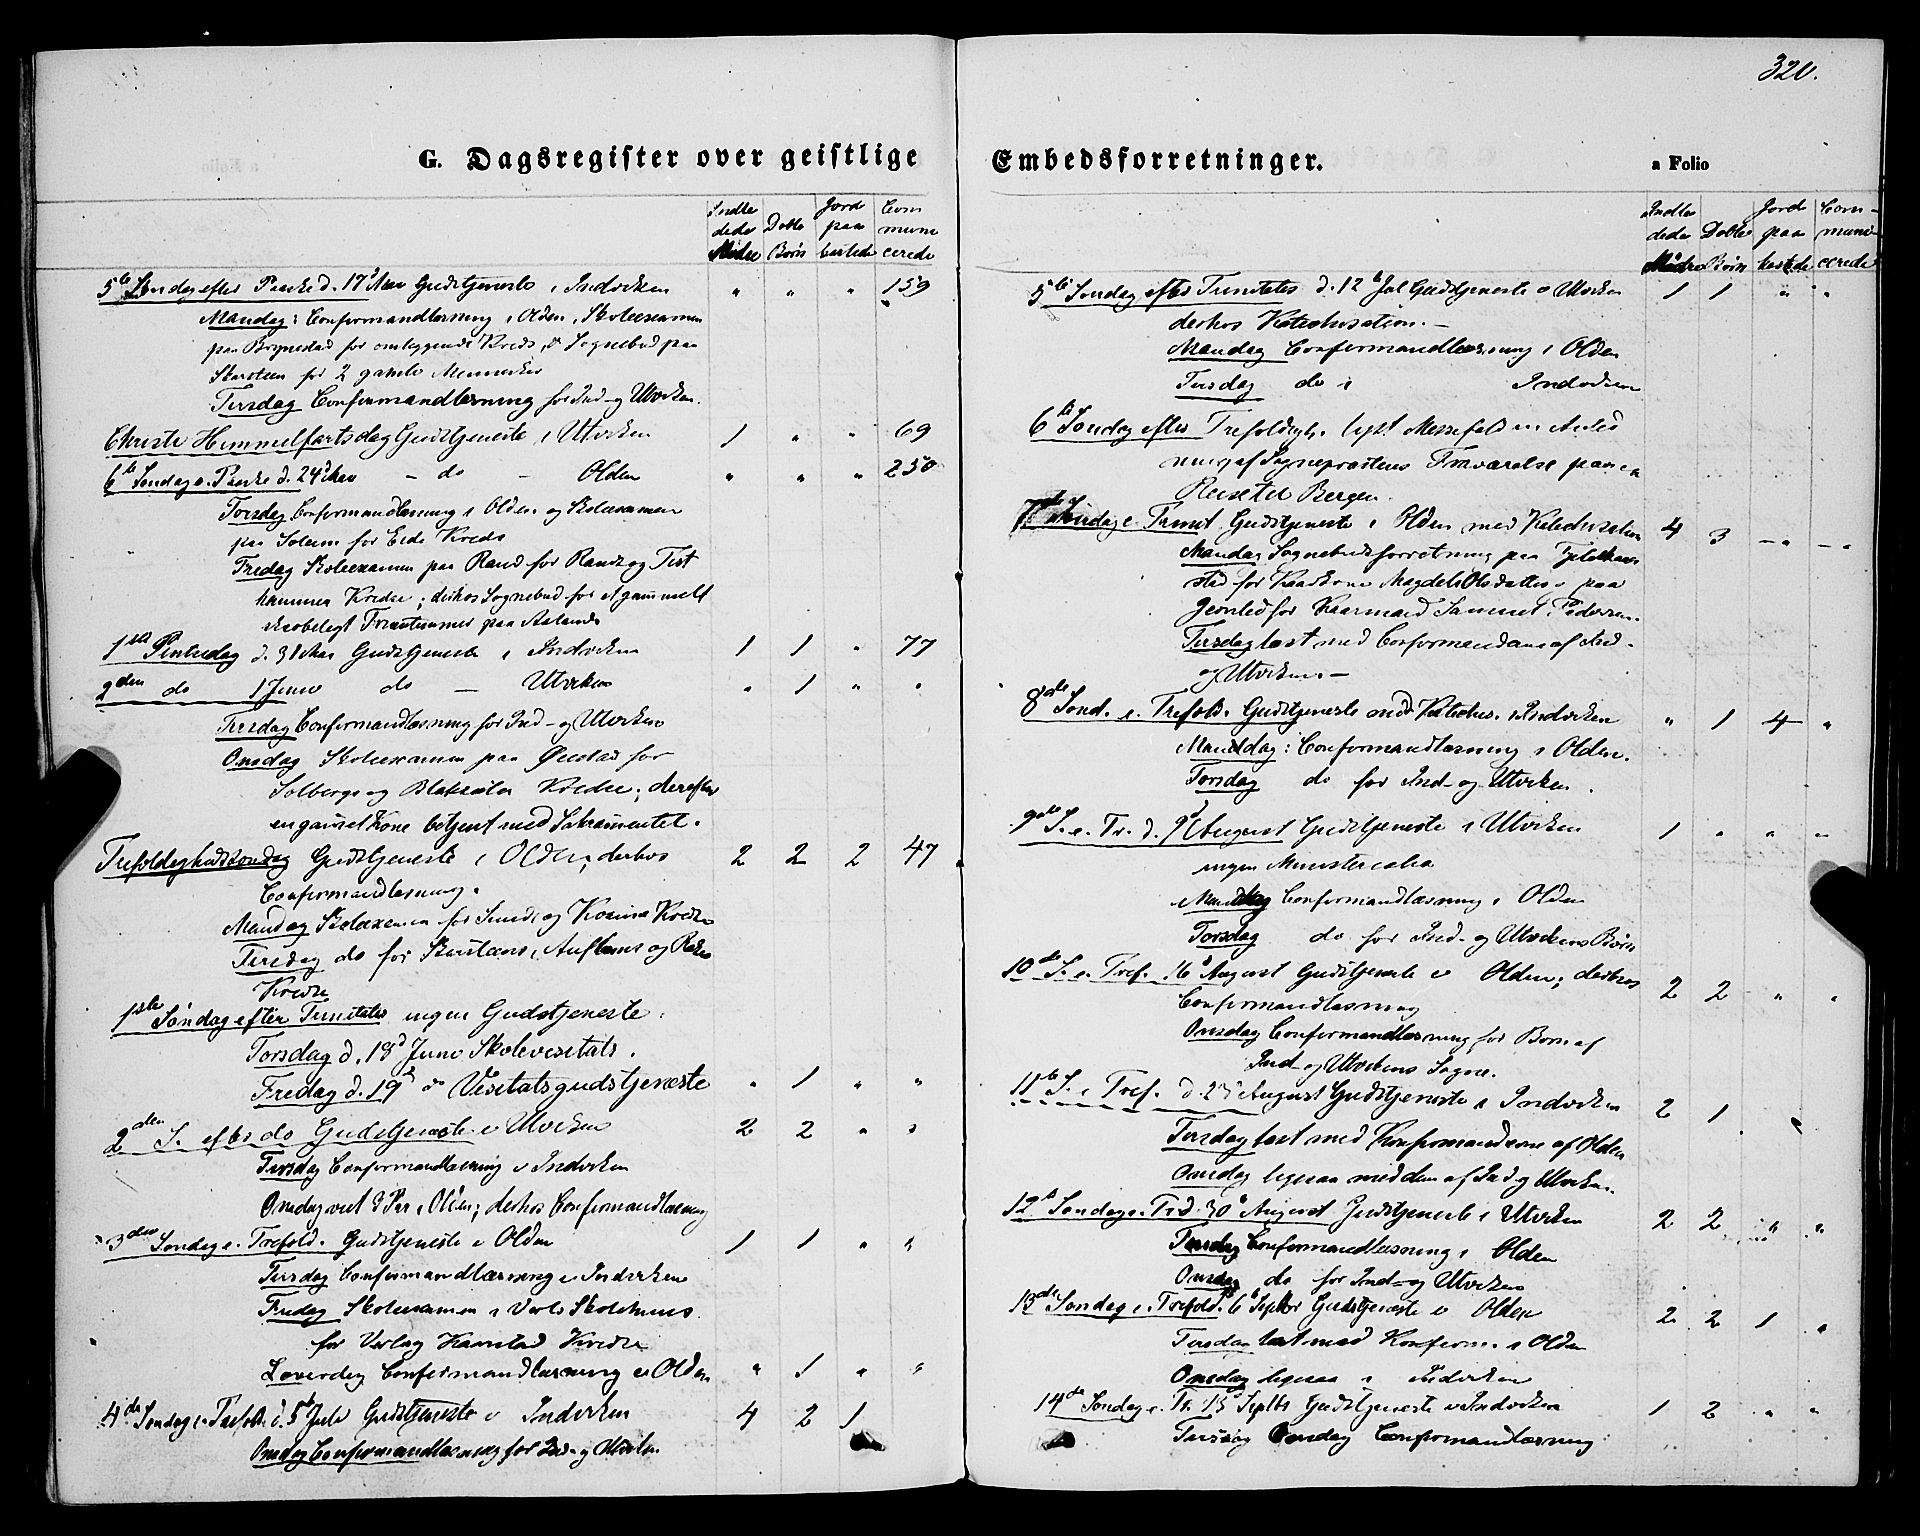 320.
G. Dagsregister over geistlige
Indle Døbte Jord Com
dede Børn paa muni
Mødre kastede cerede
5te Søndag efter Paaske d. 17de Mai Gudstjeneste i Indviken " " " 159
Mandag: Confirmandlæsning i Olden, Skoleexamen
paa Brynestad for omliggende Kreds, & Sognebud paa
for 2 gamle Mennesker
Tirsdag Confirmandlæsning for Ind- og Utviken.
Christi Himmelfartsdag Gudstjeneste i Utviken 1 " " 69
6te Søndag e. Paaske d. 24de Mai - do - Olden " " " 250
Torsdag Confirmandlæsning i Olden og Skoleexamen
paa Solem for Eide Kreds
Fredag Skoleexamen paa Rand for Rands og Tist
hammer Kredse; derhos Sognebud for et gammelt
Fruentimmer paa
1ste Pintsedag d. 31 Mai Gudstjeneste i Indviken 1 1 " 77
2den do 1 Juni do - Utviken " 1 " "
Tirsdag Confirmandlæsning for Ind- og Utviken
Onsdag Skoleexamen paa for
Solbergs og Kredse; derefter
en gammel Kone betjent med Sakramentet.
Trefoldighedssøndag Gudstjeneste i Olden, derhos 2 2 2 47
Confirmandlæsning.
Mandag Skoleexamen for og Kredse
Tirsdag do for og
Kredse
1ste Søndag efter Trinitatis ingen Gudstjeneste.
Torsdag d. 18d Juni Skolevisitats.
Fredag d. 19d do Visitatsgudstjeneste " 1 " "
2den S. efter do Gudstjeneste i Utviken 2 2 " "
Tirsdag Confirmandlæsning i Indviken
Onsdag viet 3 Par i Olden; derhos Confirmandlæsning
3die Søndag e. Trefold. Gudstjeneste i Olden 1 1 " "
Tirsdag Confirmandlæsning i Indviken
Fredag Skoleexamen i Skolehuus
for og Kredse
Løverdag Confirmandlæsning i Olden " 1 " "
4de Søndag e. Trefold. d. 5te Juli Gudstjeneste i Indviken 4 2 1
Onsdag Confirmandlæsning for Ind- og Utviken
Embedsforretninger.
a Folio
Indle Døbte Jord Com-
dede Børn paa muni-
Mødre kastede cerede
5te Søndag efter Trinitatis d. 12te Jul Gudstjeneste i Utviken 1 1 " "
derhos Katechisation. -
Mandag Confirmandlæsning i Olden
Tirsdag do i Indviken
6te Søndag efter Trefoldigh. lyst Messefald i Anled
ning af Sognepræstens Fraværelse paa en
Reise til Bergen.
7de Søndag e. Trinit. Gudstjeneste i Olden med Katechisation 4 3 - " - "
Mandag Sognebudsforretning paa
stad for Magdeli Olsdatter & paa
for Samuel Pedersen.
Tirsdag læst med Confirmanderne af Ind-
og Utviken -
8de Sønd. e. Trefold. Gudstjeneste med Katechis. i Indviken " 1 4 "
Mandag: Confirmandlæsning i Olden.
Torsdag do for Ind- og Utviken.
9de S. e. Tr. d. 9d August Gudstjeneste i Utviken 1 " " "
ingen Ministerialia
Mandag Confirmandlæsning i Olden
Torsdag do for Ind- og Utvikens Børn
10de S. e. Tref. 16d August Gudstjeneste i Olden; derhos 2 2 " "
Confirmandlæsning
Onsdag Confirmandlæsning for Børn af
Ind- og Utvikens Sogne.
11te S. e Tref. d. 23d August Gudstjeneste i Indviken 2 1 "
Tirsdag læst med Konfirmanderne af Olden
Onsdag ligesaa med dem af Ind- og Utviken.
12te Søndag e. Tr. d. 30d August Gudstjeneste i Utviken 2 2 " "
Tirsdag Confirmandlæsning i Olden
Onsdag do for Ind- og Utviken
13de Søndag e. Trefold. 6d Septbr Gudstjeneste i Olden 2 2 1 "
Tirsdag læst med Konfirm. i Olden
Onsdag ligesaa i Indviken
14de Søndag e. Tr. 13d Septbr Gudstjeneste i Indviken 1 2 " "
Tirsdag Onsdag Confirmandlæsning